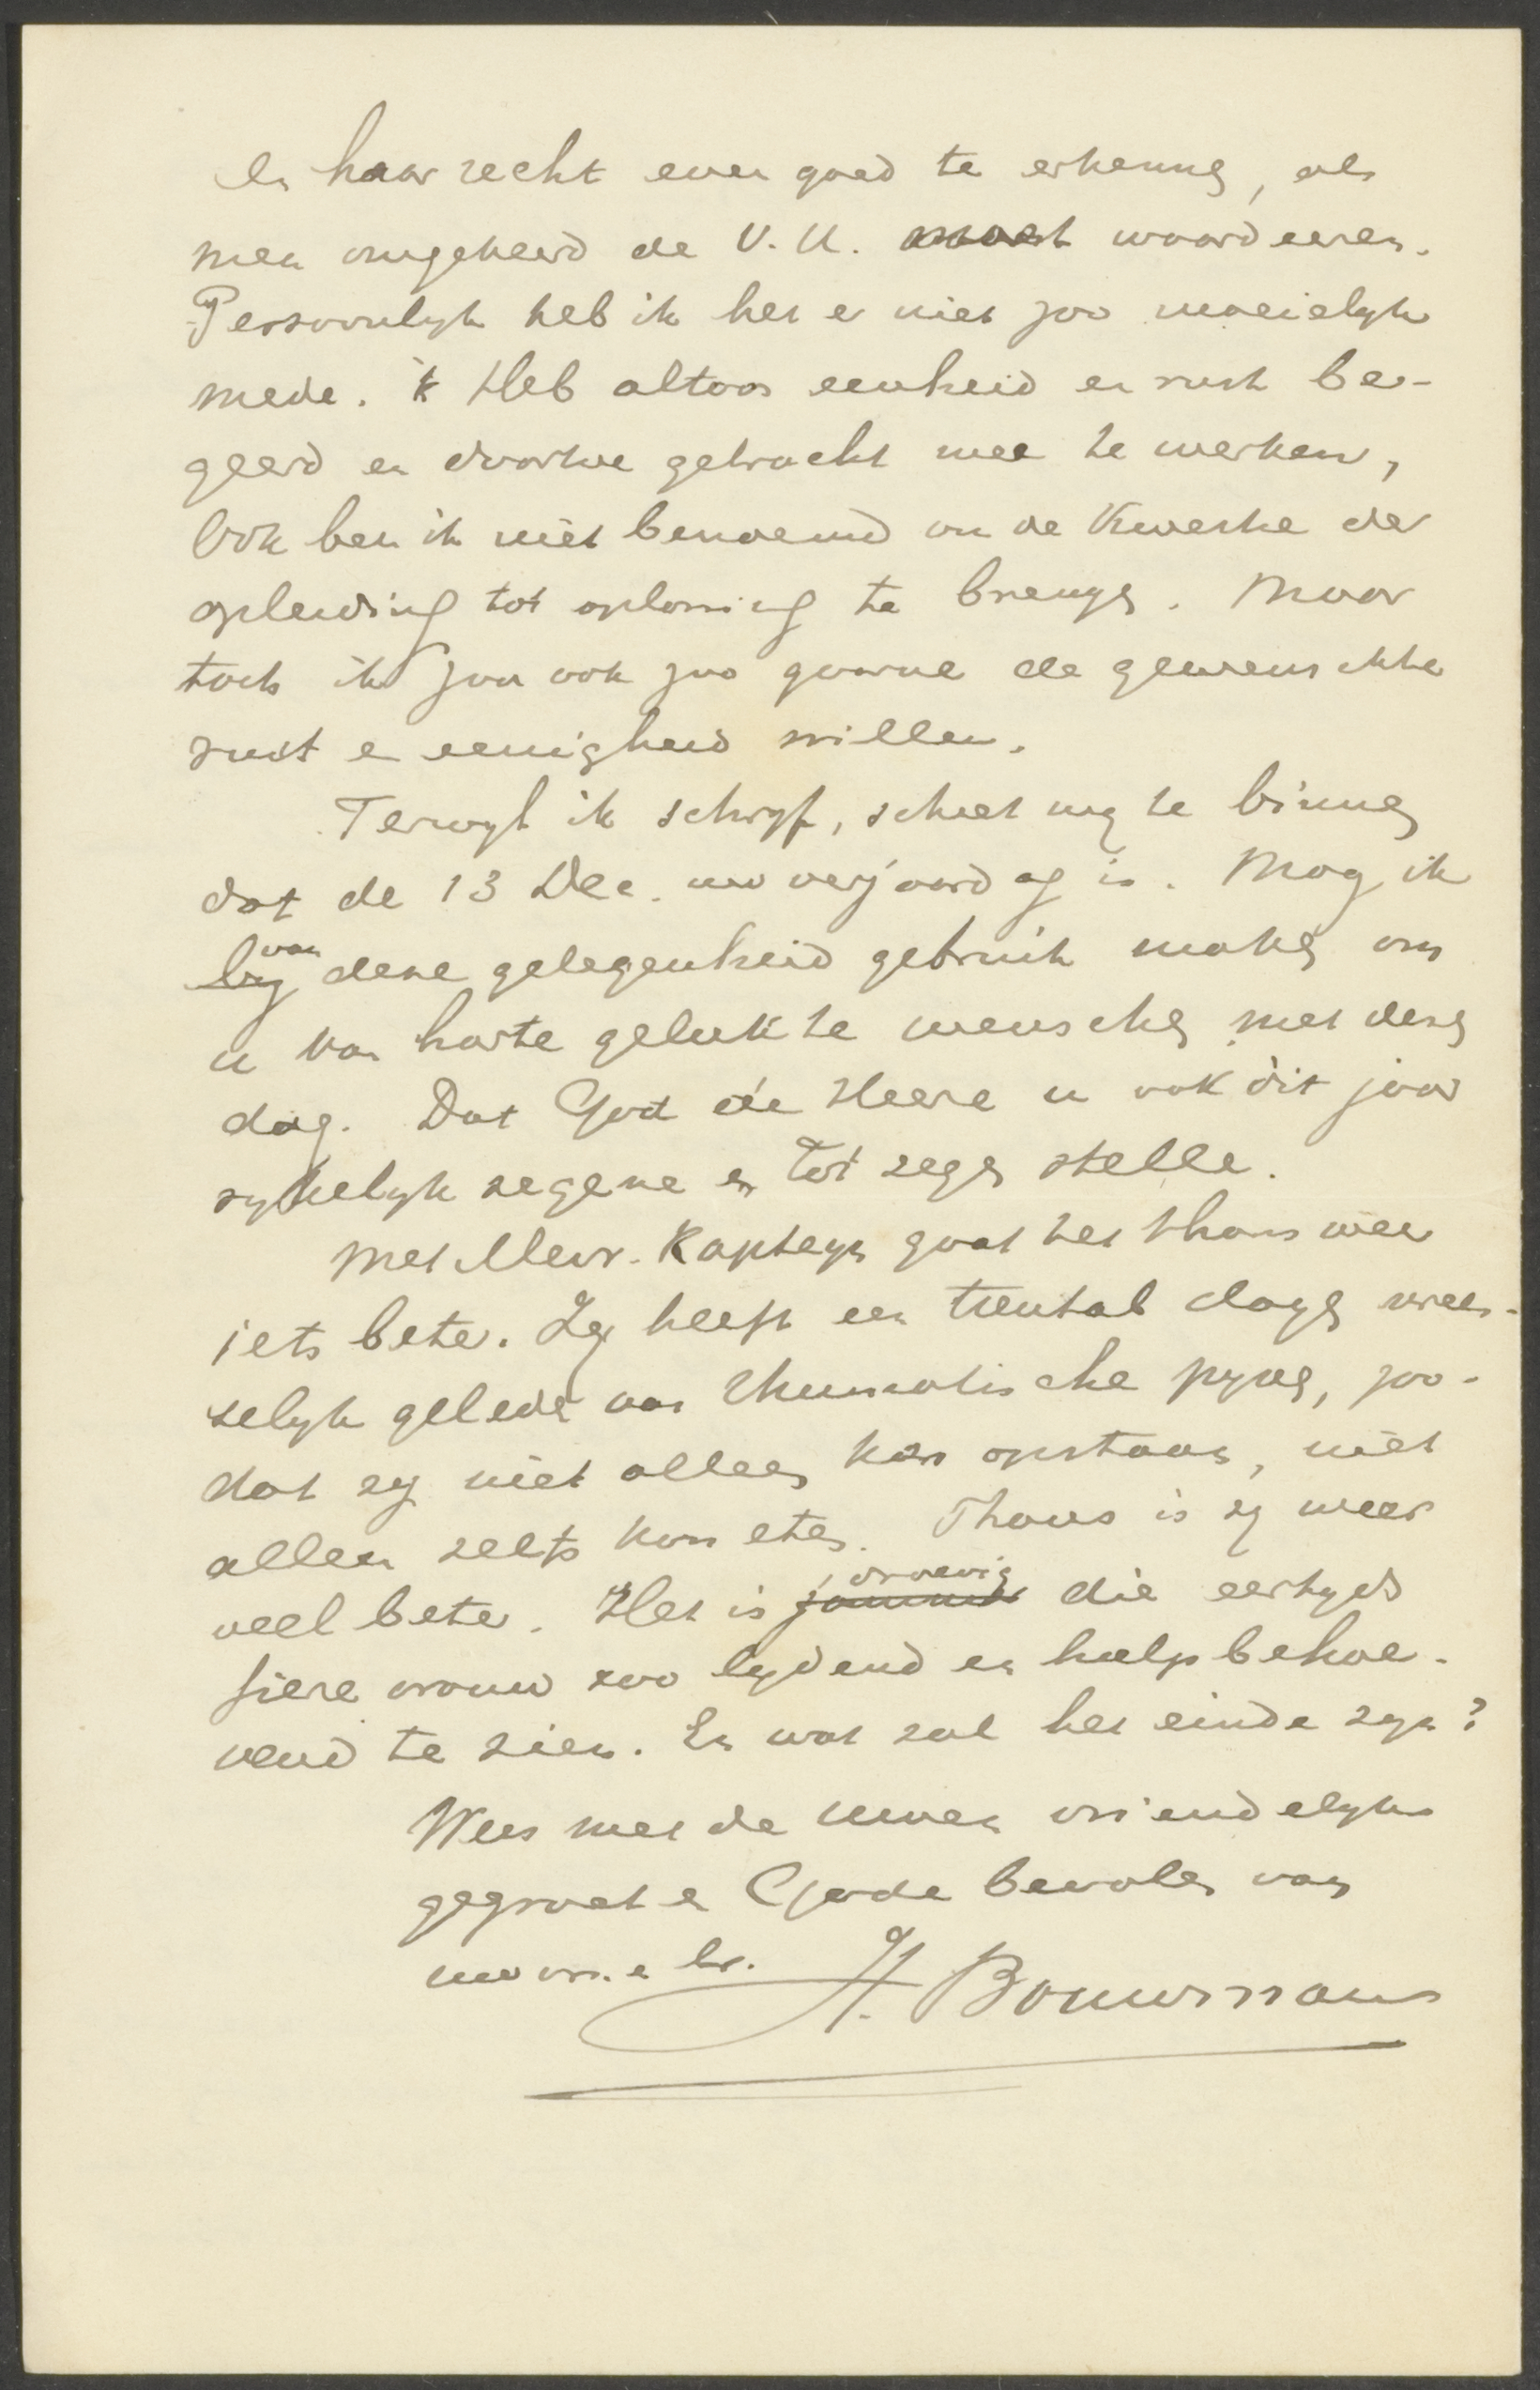 in haar recht even goed te erkennen, als
men omgekeerd de V.U. moest waardeeren.
Persoonlijk heb ik het er niet zoo moeielijk
mede. 'k Heb altoos eenheid en rust be-
geerd en daartoe getracht mee te werken,
Ook ben ik niet benoemd om de Kwestie der
opleiding tot oplossing te brengen. Maar
toch ik zou ook zoo gaarne de gewenschte
rust en eenigheid willen.
Terwijl ik schrijf, schiet mij te binnen
dat de 13 Dec. uw verjaardag is. Mag ik
bij van deze gelegenheid gebruik maken om
u van harte geluk te wenschen met dezen
dag. Dat God de Heere u ook dit jaar
rijkelijk zegene en tot zegen stelle.
Met Mevr. Kapteyn gaat het thans weer
iets beter. Zij heeft een tiental dagen vrees-
selijk geleden van rheumatische pijnen, zoo-
dat zij niet alleen kon opstaan, niet
alleen zelfs kon eten. Thans is zij weer
veel beter. Het is jammer droevig die eertijds
fiere vrouw zoo lijdend en hulpbehoe-
vend te zien. En wat zal het einde zijn?
Wees met de uwen vriendelijk
gegroet en Gode bevolen van
uw vr. en br. H. Bouwman